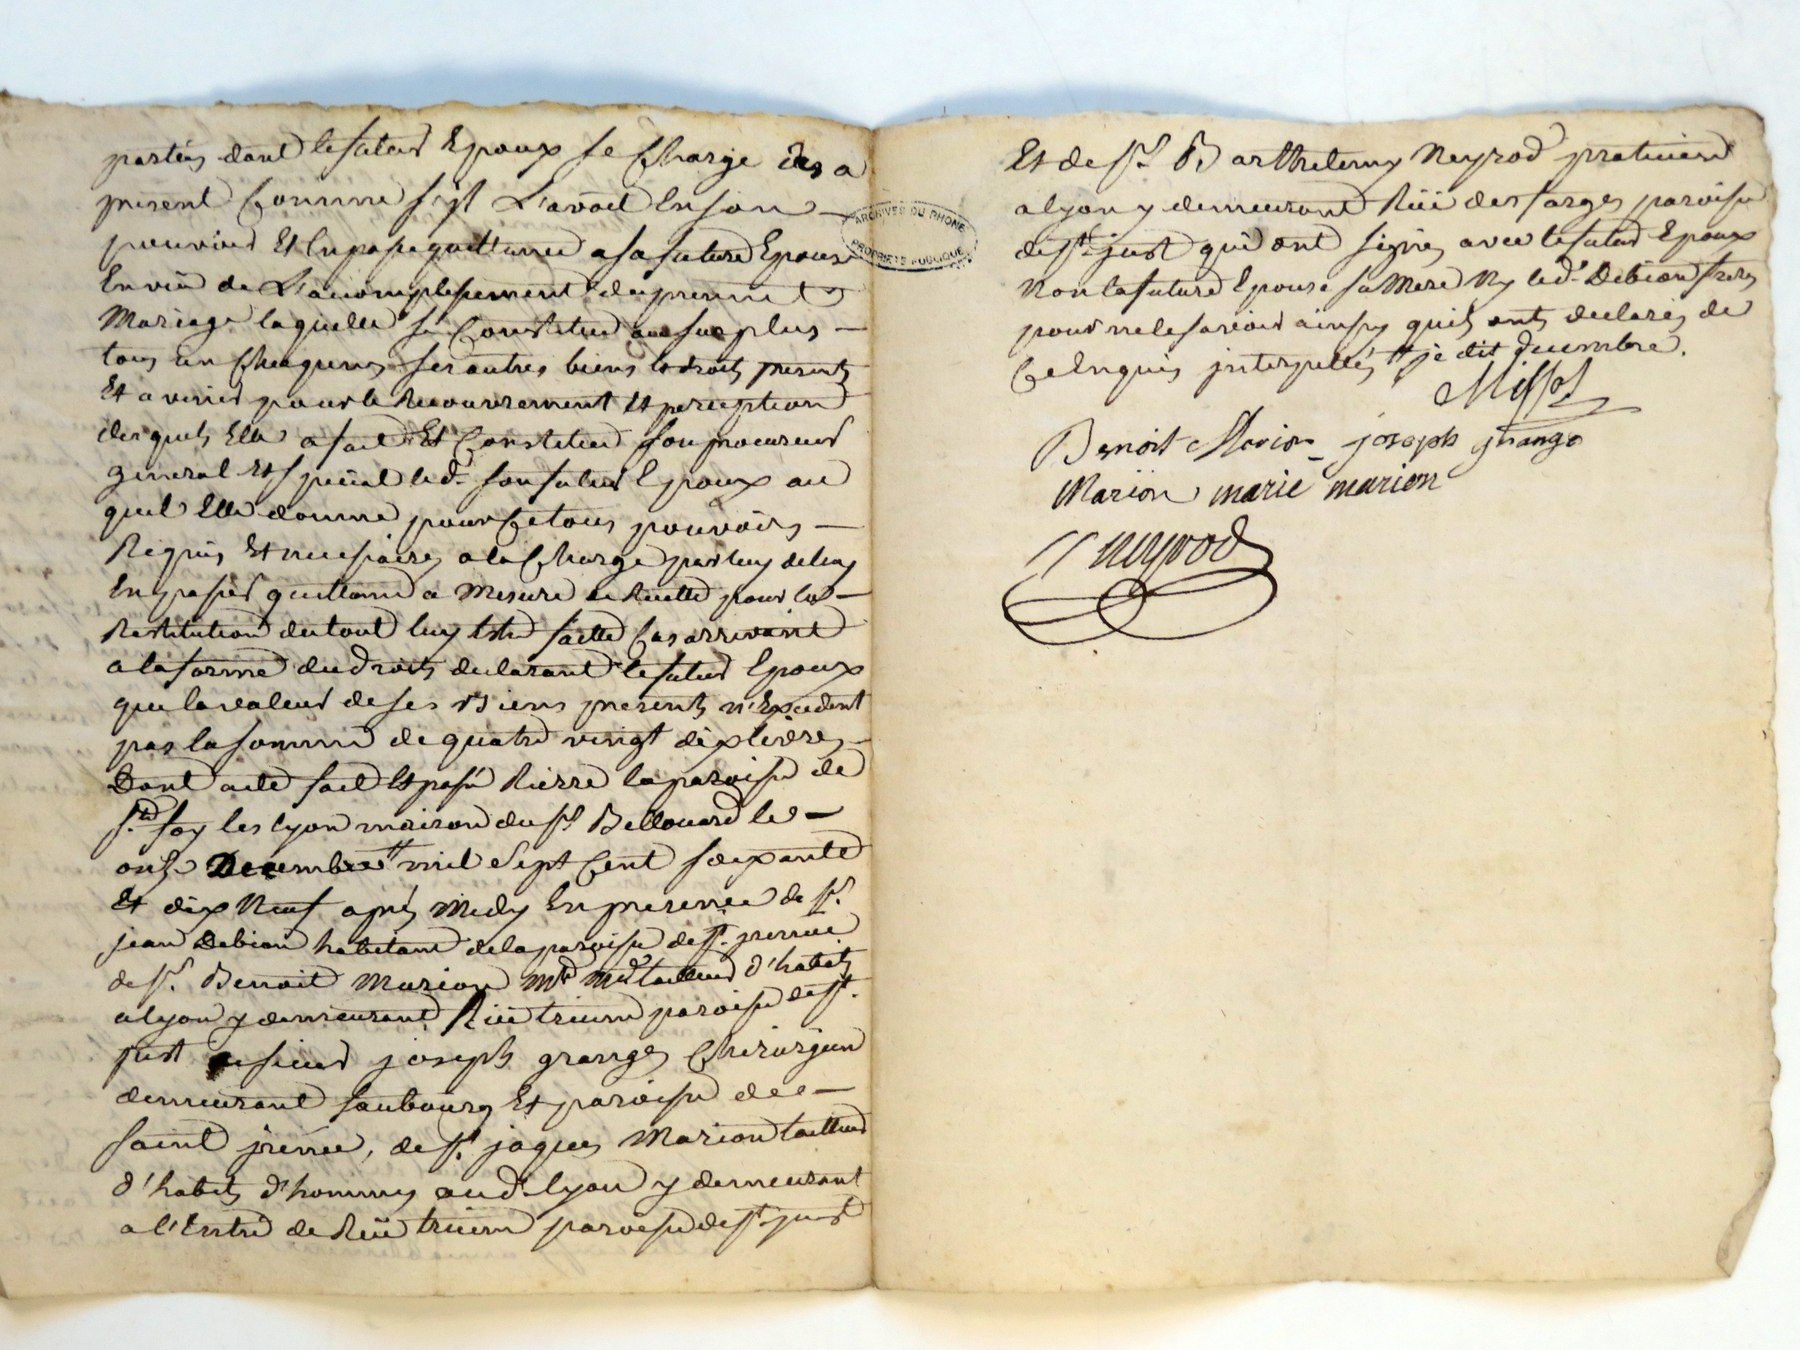 parties dont le futur Epoux se Charge des a
present Comme s'jl L'avoit En son
pouvoir Et En passe quittance a sa future Epouse
En vüe de L'accomplissement du present
Mariage laquelle se Constitue au surplus
tous En Chacuns ses autres biens Et droits presents
Et a venir pour le Recouvrement Et perception
desquels Elle a fait Et Constitué son procureur
general Et special led. son futur Epoux au
quel Elle donne pour Ce tous pouvoirs
Requis Et necessaires a la Charge par luy de luy
En passer quittance a Mesure de Recette pour la
Restitution du tout luy Estre faitte Cas arrivant
a la forme du Droits declarant le futur Epoux
que la valeur de ses Biens presents n'Excedent
pas la somme de quatre vingt dix livres
Dont acte fait Et passé Rierre la paroisse de
Ste. foy les lyon maison du sr. Bellouard le
onze Decembre mil Sept Cent soixante
Et dix Neuf après Midy En presence de sr.
jean Debion habitant de la paroisse de st. jrenné
de sr. Benoit Marion Md. tailleur d'habits
a lyon y demeurant Rüe trium paroisse de st.
just sieur joseph granges Chirurgien
demeurant faubourg Et paroisse de
saint jrenée, de sr. jaques Marion tailleur
d'habits d'hommes aud. lyon y demeurant
a l'Entré de Rüe trium paroisse de st. just
ARCHIVES DU RHONE
PROPRIÉTÉ PUBLIQUE
Et de sr. Barthelemy Neyrod praticien
a lyon y demeurant Rüe des farges paroisse
de st. just qui ont signés avec le futur Epoux
Non la future Epouse sa Mere Ny led. Debion freres
pour ne le savoir ainsy quils onts declarés de
Ce Enquis jnterpellés je dit decembre.
Benoit Marion joseph grange
Marion marie marion
neyrod